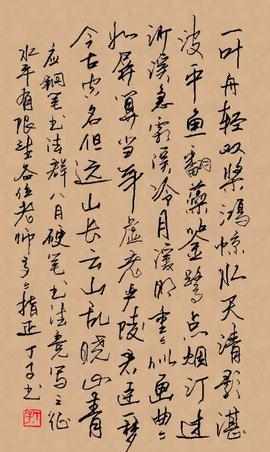 一叶舟轻双桨鸿惊水天清影湛
波平鱼翻藻鉴鹭点烟汀过
沙溪急霜溪冷月溪明重重似画曲曲
如屏算当年虚老严陵君臣一梦
今古空名但远山长云山乱晓山青
应钢笔书法群八月硬笔书法竞写之征
水平有限请各位老师多多指正 丁书